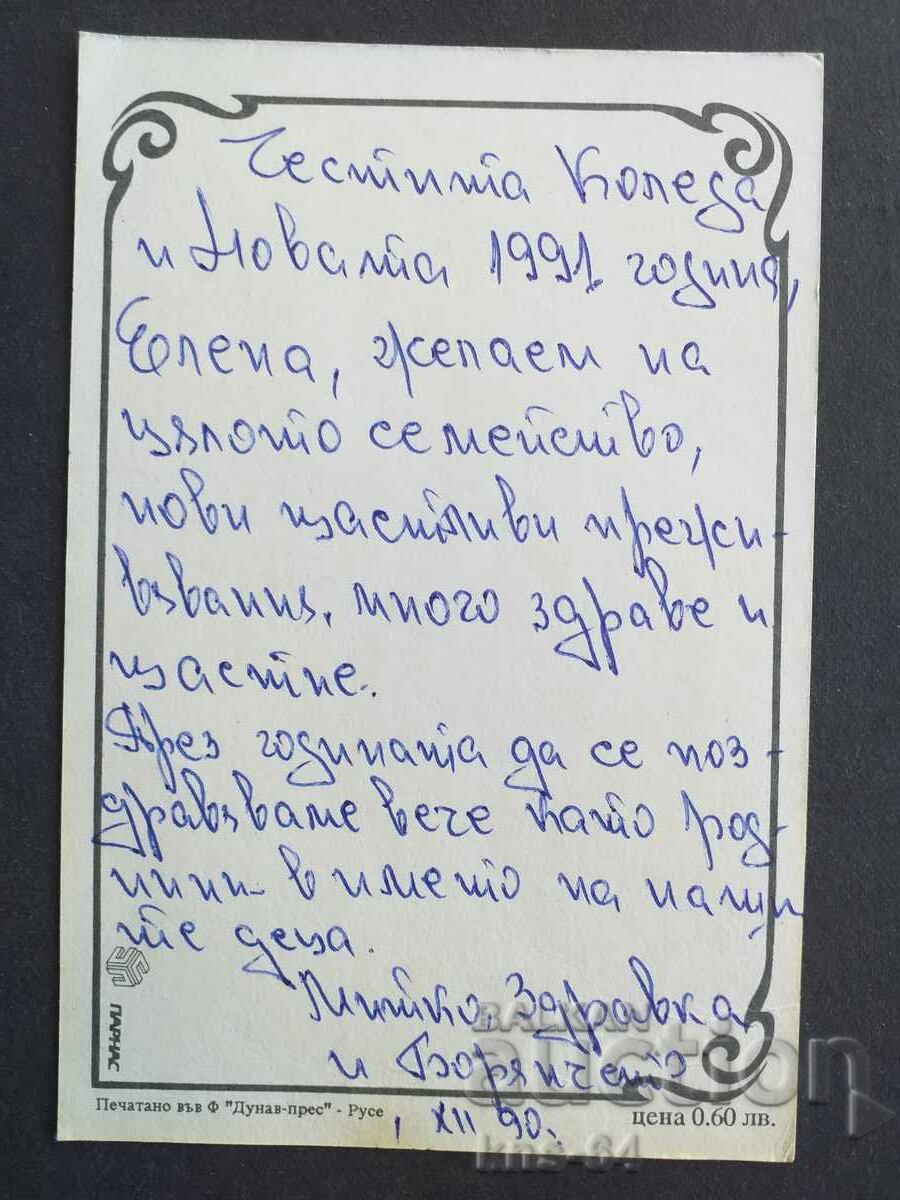 Честита Коледа
и Новата 1991 година,
Елена, желаем на
цялото семейство,
нови щастливи прежи-
взвания, много здраве и
щастие.
През годината да се поз-
дравзваме вече като род-
нини в името на наши
те деца.
Митко, Здравка
и Борянчето
ПАРНАС
Печатано във Ф "Дунав-прес" - Русе
XII 90.
цена 0.60 лв.
BALKAN
auction
kns-64